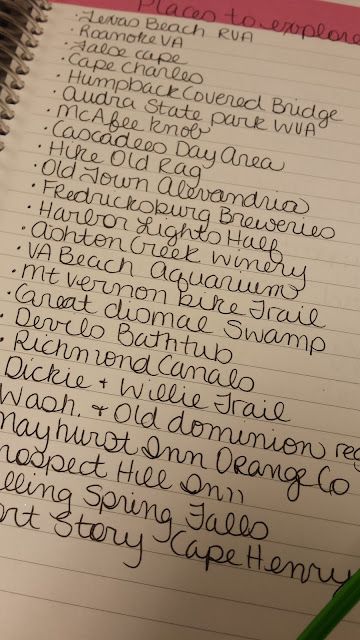 Places to explore
·Texas Beach RVA
·Roanoke VA
·False cape
·Cape Charles
·Humpback Covered Bridge
·Audra State park WVA
·McAfee Knob
·Cascades Day Area
·Hike Old Rag
·Old Town Alexandria
·Fredricksburg Breweries
·Harbor Lights Half
·Ashton Creek Winery
·VA Beach Aquarium
·Mt Vernon bike Trail
·Great dismal Swamp
·Devils Bathtub
·Richmond Canals
Dickie + Willie Trail
Wash. + Old dominion reg
Mayhurst Inn Orange Co
rospect Hill Inn
lling Spring Falls
ort Story Cape Henry